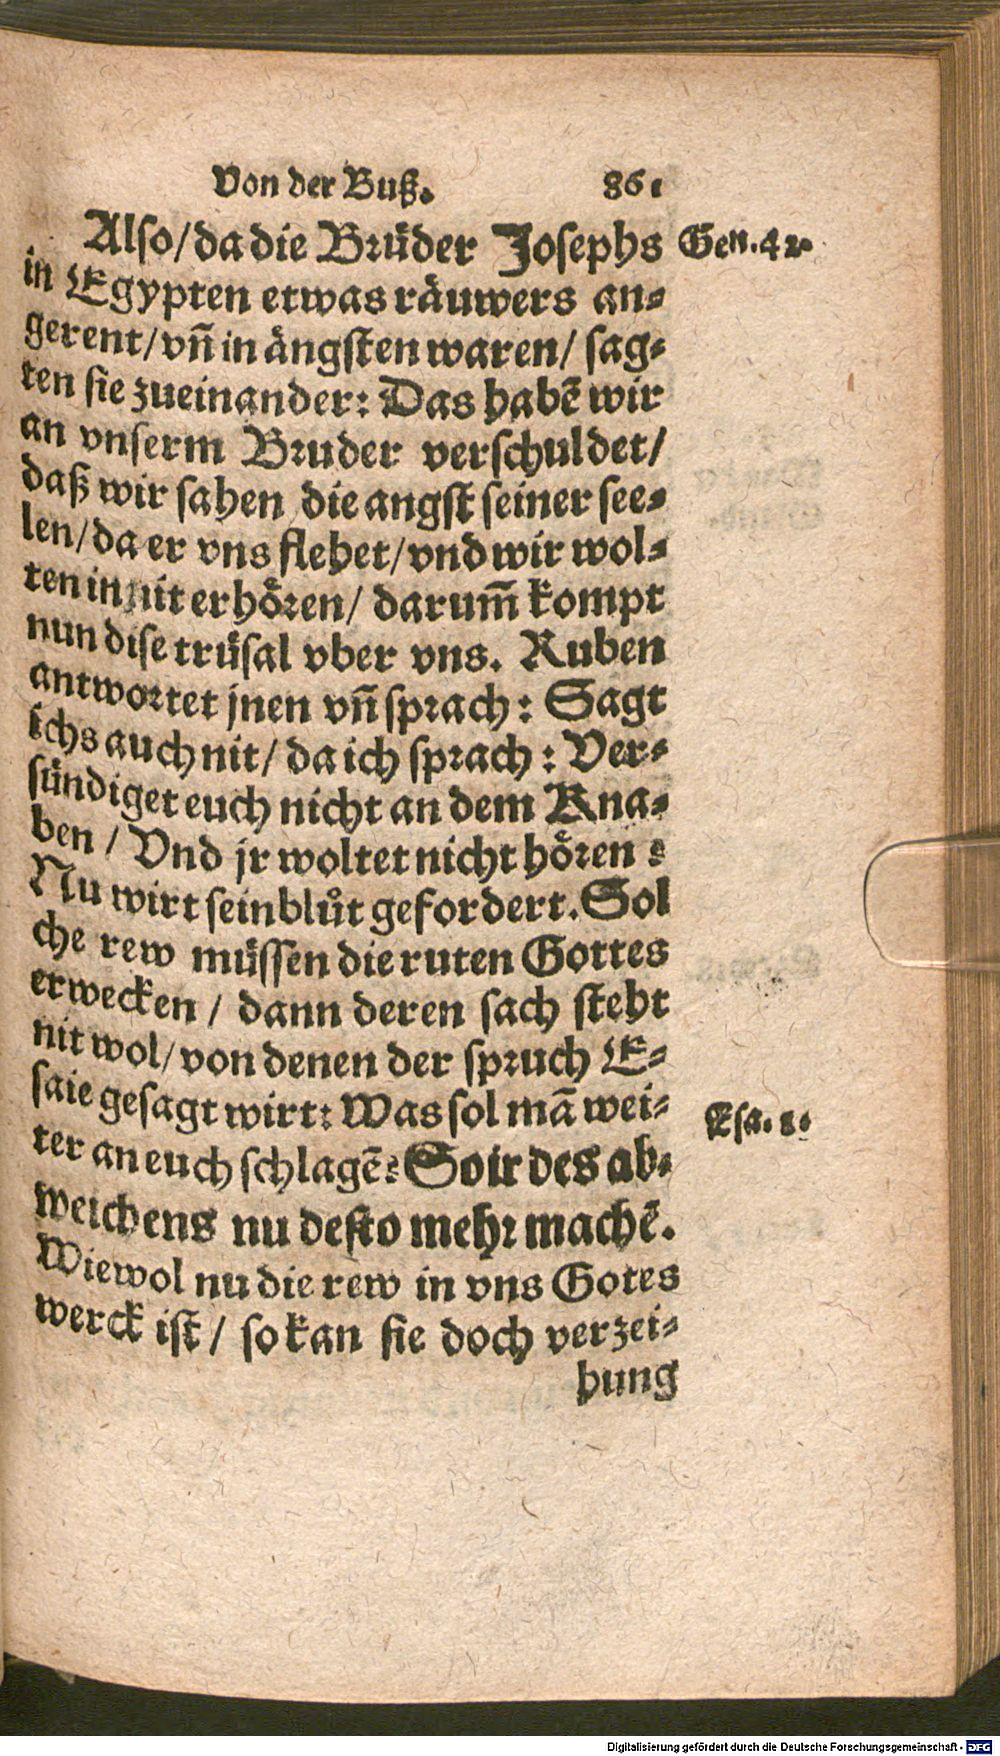 Von der Buß. 86.
Also/ da die Brüder Josephs Gen. 42.
in Egypten etwas räuwers an-
gerent/ vñ in ängsten waren/ sag-
ten sie zueinander: Das habẽ wir
an vnserm Bruder verschuldet/
daß wir sahen die angst seiner see-
len/ da er vns flehet/ vnd wir wol-
ten in nit erhören/ darum̃ kompt
nun dise trüsal vber vns. Ruben
antwortet jnen vñ sprach: Sagt
ichs auch nit/ da ich sprach: Ver-
sündiget euch nicht an dem Kna-
ben / Vnd jr woltet nicht hören :
Nu wirt sein blůt gefordert. Sol
che rew müssen die ruten Gottes
erwecken / dann deren sach steht
nit wol/ von denen der spruch E-
saie gesagt wirt: Was sol mã wei-
ter an euch schlagẽ: So ir des ab- Esa. 1.
weichens nu desto mehr machẽ.
Wiewol nu die rew in vns Gotes
werck ist / so kan sie doch verzei-
hung
Digitalisierung gefördert durch die Deutsche Forschungsgemeinschaft - DFG